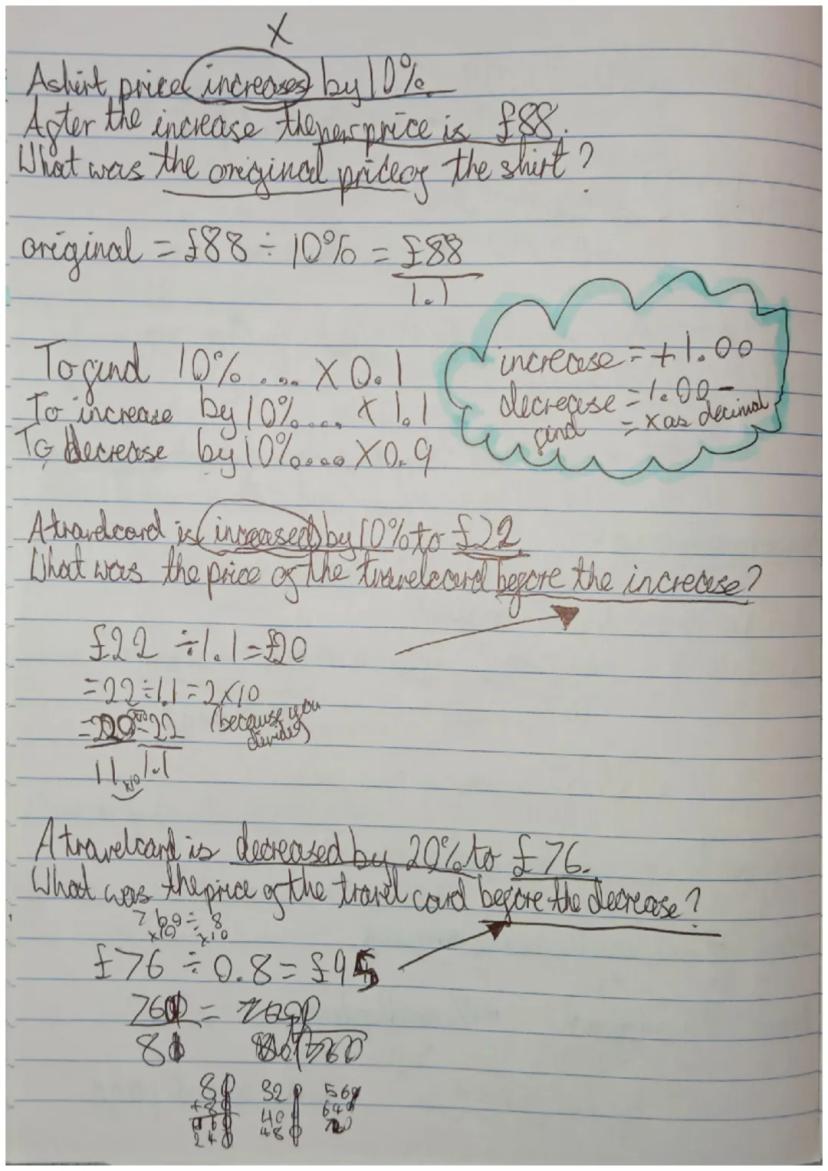 X
A shirt price increases by 10%.
After the increase the new price is £88.
What was the original price of the shirt?
original = £88 ÷ 10% = £88
1.1
To find 10% .... X 0.1
To increase by 10%.... X 1.1
To decrease by 10%.... X 0.9
increase = +1.00
decrease = 1.00-
find = x as decimal
A travelcard is increased by 10% to £22
What was the price of the travelcard before the increase?
£22 ÷ 1.1 = £20
= 22 ÷ 1.1 = 2 x 10
= 220 = 22 (because you
divide)
11 x10 1.1
A travelcard is decreased by 20% to £76.
What was the price of the travel card before the decrease?
760 ÷ 8
x10 x10
£76 ÷ 0.8 = £95
760 =
80
80 320 560
+80 400 640
240 480